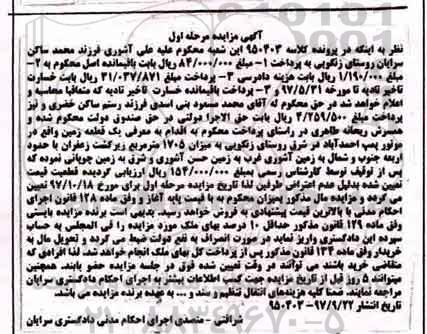 آگهی مزایده مرحله اول
نظر به اینکه در پرونده کلاسه ۹۵۰۴۰۳ این شعبه محکوم علیه علی آشوری فرزند محمد ساکن
سرایان روستای زنگویی به پرداخت ۱- مبلغ ۸۴/۰۰۰/۰۰۰ ریال بابت باقیمانده اصل محکوم به ۲-
مبلغ ۱/۱۹۰/۰۰۰ ریال بابت هزینه دادرسی ۳- پرداخت مبلغ ۳۱/۰۳۷/۸۷۱ ریال بابت خسارت
تاخیر تادیه تا مورخه ۹۷/۵/۲۱ و ۴- پرداخت باقیمانده خسارت تاخیر تادیه که متعاقبا محاسبه و
اعلام خواهد شد در حق محکوم له آقای محمد مسعود بنی اسدی فرزند رستم ساکن خضری و نیز
پرداخت مبلغ ۴/۲۵۹/۵۰۰ ریال بابت حق الاجرا دولتی در حق صندوق دولت محکوم شده و
همسرش ریحانه طاهری در راستای پرداخت محکوم به اقدام به معرفی یک قطعه زمین واقع در
موتور پمپ احمدآباد در شرق روستای زنگویی به میزان ۱۷۰۵ مترمربع زیرکشت زعفران با حدود
اربعه جنوب و شمال به زمین آشوری غرب به زمین حسن آشوری و شرق به زمین چوپانی نموده که
پس از توقیف توسط کارشناس رسمی بمبلغ ۱۵۴/۰۰۰/۰۰۰ ریال ارزیابی گردیده قطعیت قیمت
تعیین شده بدلیل عدم اعتراض طرفین لذا تاریخ مزایده مرحله اول برای مورخ ۹۷/۱۰/۱۸ تعیین
می گردد و مزایده مال مذکور بمیزان محکوم به با قیمت پایه آغاز و وفق ماده ۱۲۸ قانون اجرای
احکام مدنی با بالاترین قیمت پیشنهادی به فروش خواهد رسید. بدیهی است برنده مزایده بایستی
وفق ماده ۱۲۹ قانون مذکور حداقل ۱۰ درصد بهای ملک مورد مزایده را فی المجلس به حساب
سپرده این دادگستری واریز نماید در صورت انصراف به نفع دولت ضبط می گردد و تحویل مال به
خریدار وفق ماده ۱۳۴ قانون مذکور پس از پرداخت کل بهای ملک انجام خواهد شد. لذا افرادی که
متقاضی خرید باشند می توانند در وقت تعیین شده فوق در جلسه مزایده حضور یابند. همچنین
میتوانند ۵ روز قبل از تاریخ مزایده جهت کسب اطلاعات بیشتر به اجرای احکام دادگستری سرایان
مراجعه نمایند. ضمنا کلیه هزینه‌های انتقال تنظیم و سند و ... به عهده برنده مزایده می باشد.
تاریخ انتشار ۹۷/۹/۲۲- ۹۵۰۴۰۳
شرافتی - متصدی اجرای احکام مدنی دادگستری سرایان